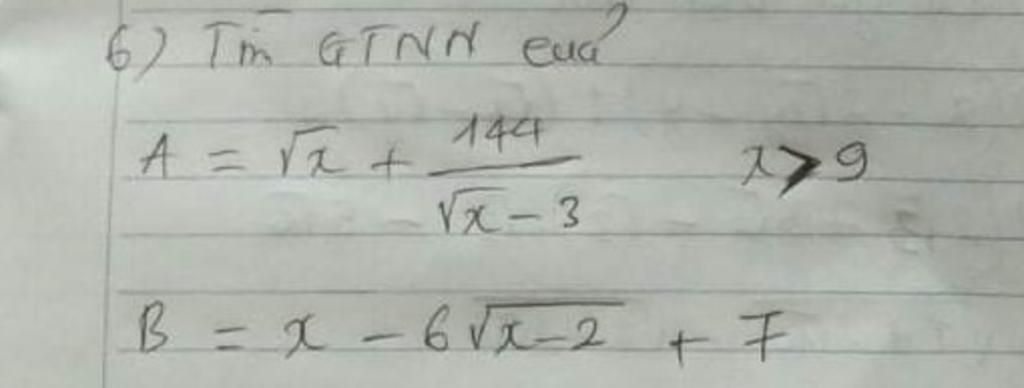 6) Tìm GTNN của
A = √x + 144/(√x - 3) x > 9
B = x - 6√(x-2) + 7